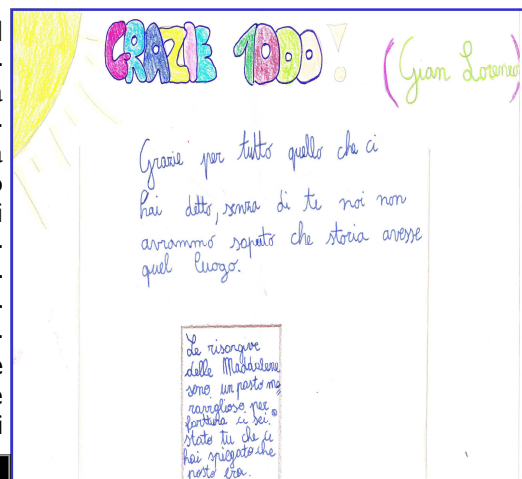 GRAZIE 1000!
(Gian Lorenzo)
Grazie per tutto quello che ci
hai detto, senza di te noi non
avrammo saputo che storia avesse
quel luogo.
Le risorgive
delle Maddalene
sono un posto me
raviglioso per
forttuna ci sei
stato tu che ci
hai spiegato che
posto era.